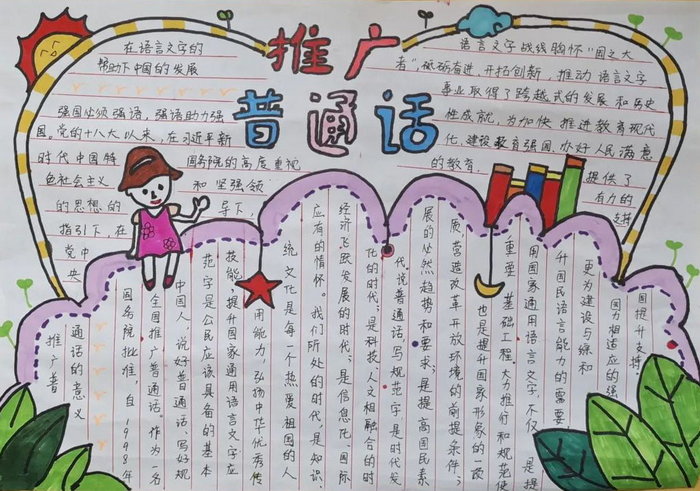 推广
普通话
在语言文字的
帮助下中国的发展
强国必须强语，强语助力强
国。党的十八大以来，在习近平新
时代中国特
色社会主义
的思想的
指引下，在
党中
央
国务院的高度重视
和坚强领
导下，
语言文字战线胸怀“国之大
者”，砥砺奋进，开拓创新，推动语言文字
事业取得了跨越式的发展和历史
性成就，为加快推进教育现代
化，建设教育强国，办好人民满意
的教育，
提供了
有力的
支持
推广普
通话的意义
国务院批准，自1998年
全国推广普通话。作为一名
中国人，说好普通话，写好规
范字是公民应该具备的基本
技能；提升国家通用语言文字应
用能力，弘扬中华优秀传
统文化是每一个热爱祖国的人
应有的情怀。我们所处的时代，是知识
经济飞跃发展的时代；是信息化、国际
化的时代；是科技人文相融合的时
代，说普通话写规范字是时代发
展的必然趋势和要求；是提高国民素
质，营造改革开放环境的前提条件；
也是提升国家形象的一项
重要基础工程，大力推广和规范使
用国家通用语言文字，不仅是提
升国民语言能力的需要
更为建设与综和
国力相适应的强
国提升支持.